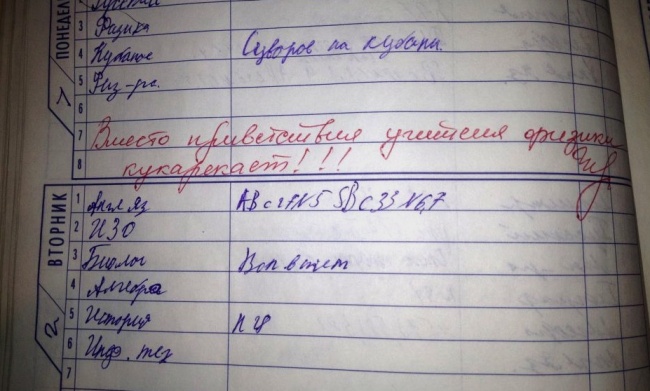 ПОНЕДЕЛ
3 Физика
4 Кубанов Суворов на кубани.
5 Физ-ра.
6
7 Вместо приветствия учителя физики
8 кукарекает!!!
ВТОРНИК
1 Англ яз
2 ИЗО
3 Биолог
4 Алгебра
5 История
6 Инф. тех
7